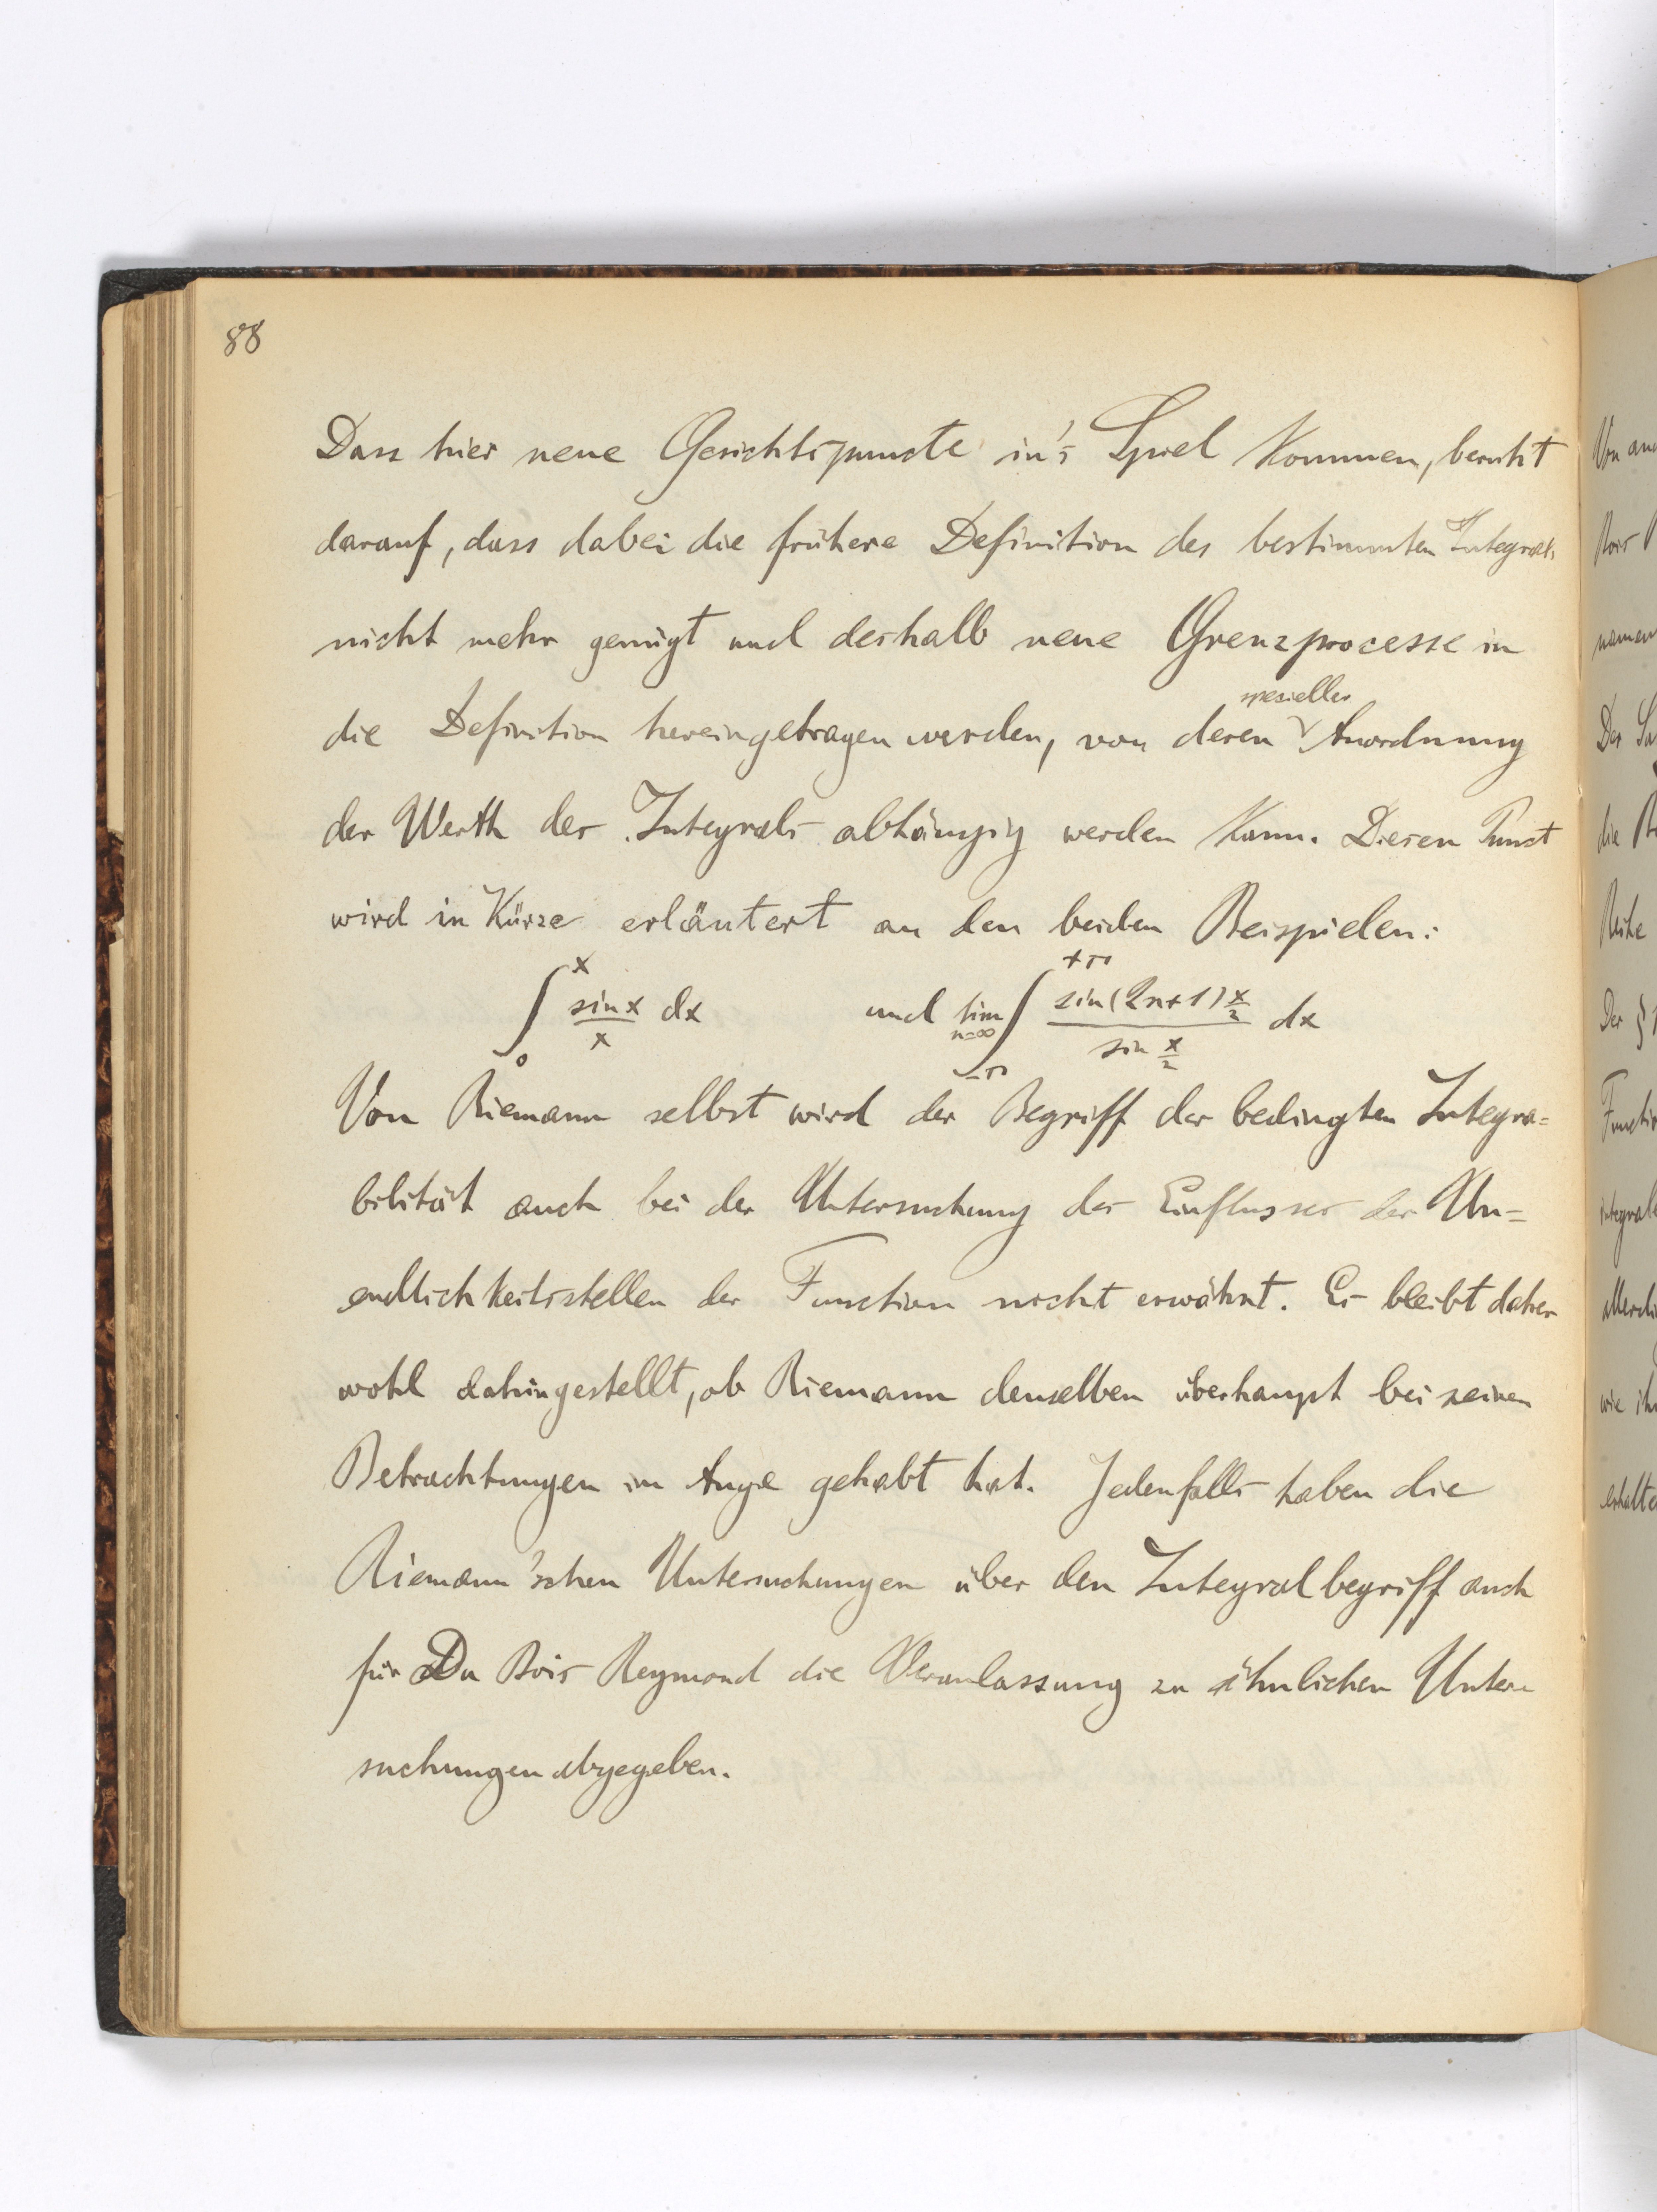 88
Dass hier neue Gesichtspuncte in's Spiel kommen, beruht
darauf, dass dabei die frühere Definition des bestimmten Integrals
nicht mehr genügt und deshalb neue Grenzprocesse in
die Definition hereingetragen werden, von deren spezieller Anordnung
der Werth des Integrals abhängig werden kann. Dieser Punct
wird in Kürze erläutert an den beiden Beispielen:
∫₀ˣ sin x / x dx und lim n=∞ ∫₋π⁺π sin(2n+1) x/2 / sin x/2 dx
Von Riemann selbst wird der Begriff der bedingten Integra=
bilität auch bei der Untersuchung des Einflusses der Un=
endlichkeitsstellen der Function nicht erwähnt. Es bleibt daher
wohl dahingestellt, ob Riemann denselben überhaupt bei seinen
Betrachtungen im Auge gehabt hat. Jedenfalls haben die
Riemann'schen Untersuchungen über den Integralbegriff auch
für Du Bois Reymond die Veranlassung zu ähnlichen Unter=
suchungen abgegeben.